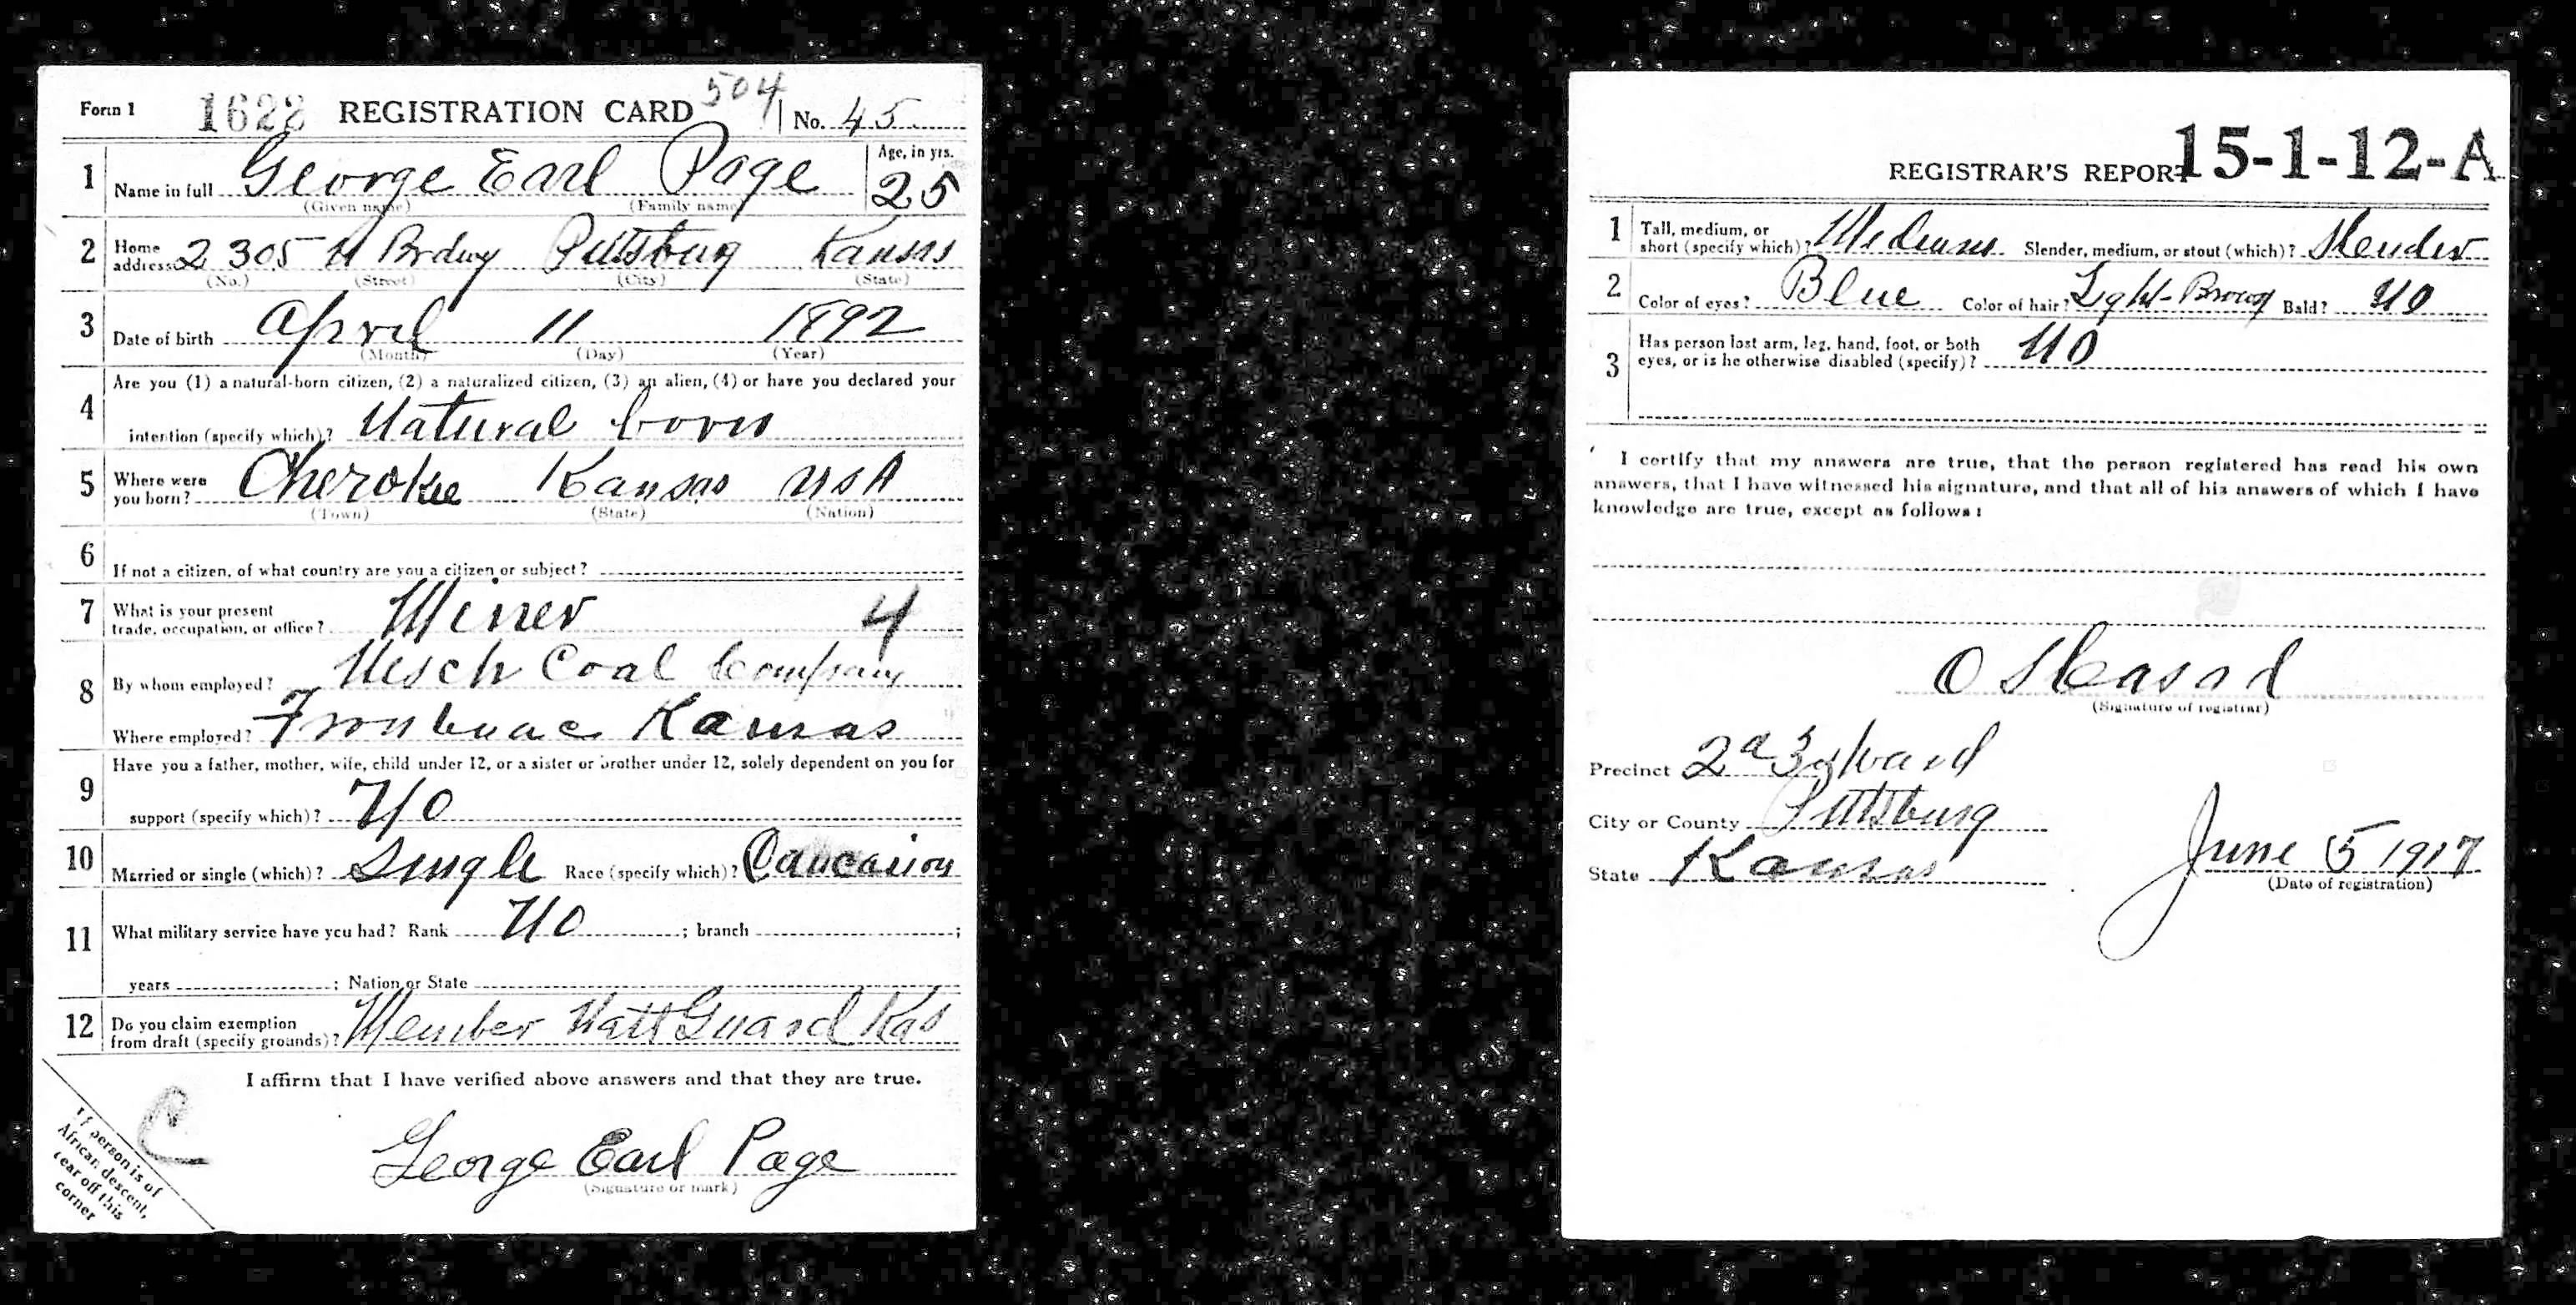 504
Form 1 1622 REGISTRATION CARD No. 45
1 Name in full George Earl Page Age, in yrs. 25
(Given name) (Family name)
2 Home address 2305 N Brdwy Pittsburg Kansas
(No.) (Street) (City) (State)
3 Date of birth April 11 1892
(Month) (Day) (Year)
4 Are you (1) a natural-born citizen, (2) a naturalized citizen, (3) an alien, (4) or have you declared your
intention (specify which)? Natural born
5 Where were you born? Cherokee Kansas USA
(Town) (State) (Nation)
6 If not a citizen, of what country are you a citizen or subject?
7 What is your present trade, occupation, or office? Miner 4
8 By whom employed? Nesch Coal Company
Where employed? Frontenac Kansas
9 Have you a father, mother, wife, child under 12, or a sister or brother under 12, solely dependent on you for
support (specify which)? No
10 Married or single (which)? Single Race (specify which)? Caucasion
11 What military service have you had? Rank No ; branch ;
years ; Nation or State
12 Do you claim exemption from draft (specify grounds)? Member Natl Guard Kas
I affirm that I have verified above answers and that they are true.
C
George Earl Page
(Signature or mark)
If person is of
African descent,
tear off this
corner
15-1-12-A
REGISTRAR'S REPORT
1 Tall, medium, or short (specify which)? Medium Slender, medium, or stout (which)? Slender
2 Color of eyes? Blue Color of hair? Light-Brown Bald? No
3 Has person lost arm, leg, hand, foot, or both
eyes, or is he otherwise disabled (specify)? No
I certify that my answers are true, that the person registered has read his own
answers, that I have witnessed his signature, and that all of his answers of which I have
knowledge are true, except as follows:
O S Casad
(Signature of registrar)
Precinct 2d 3rd Ward
City or County Pittsburg
State Kansas June 5 1917
(Date of registration)